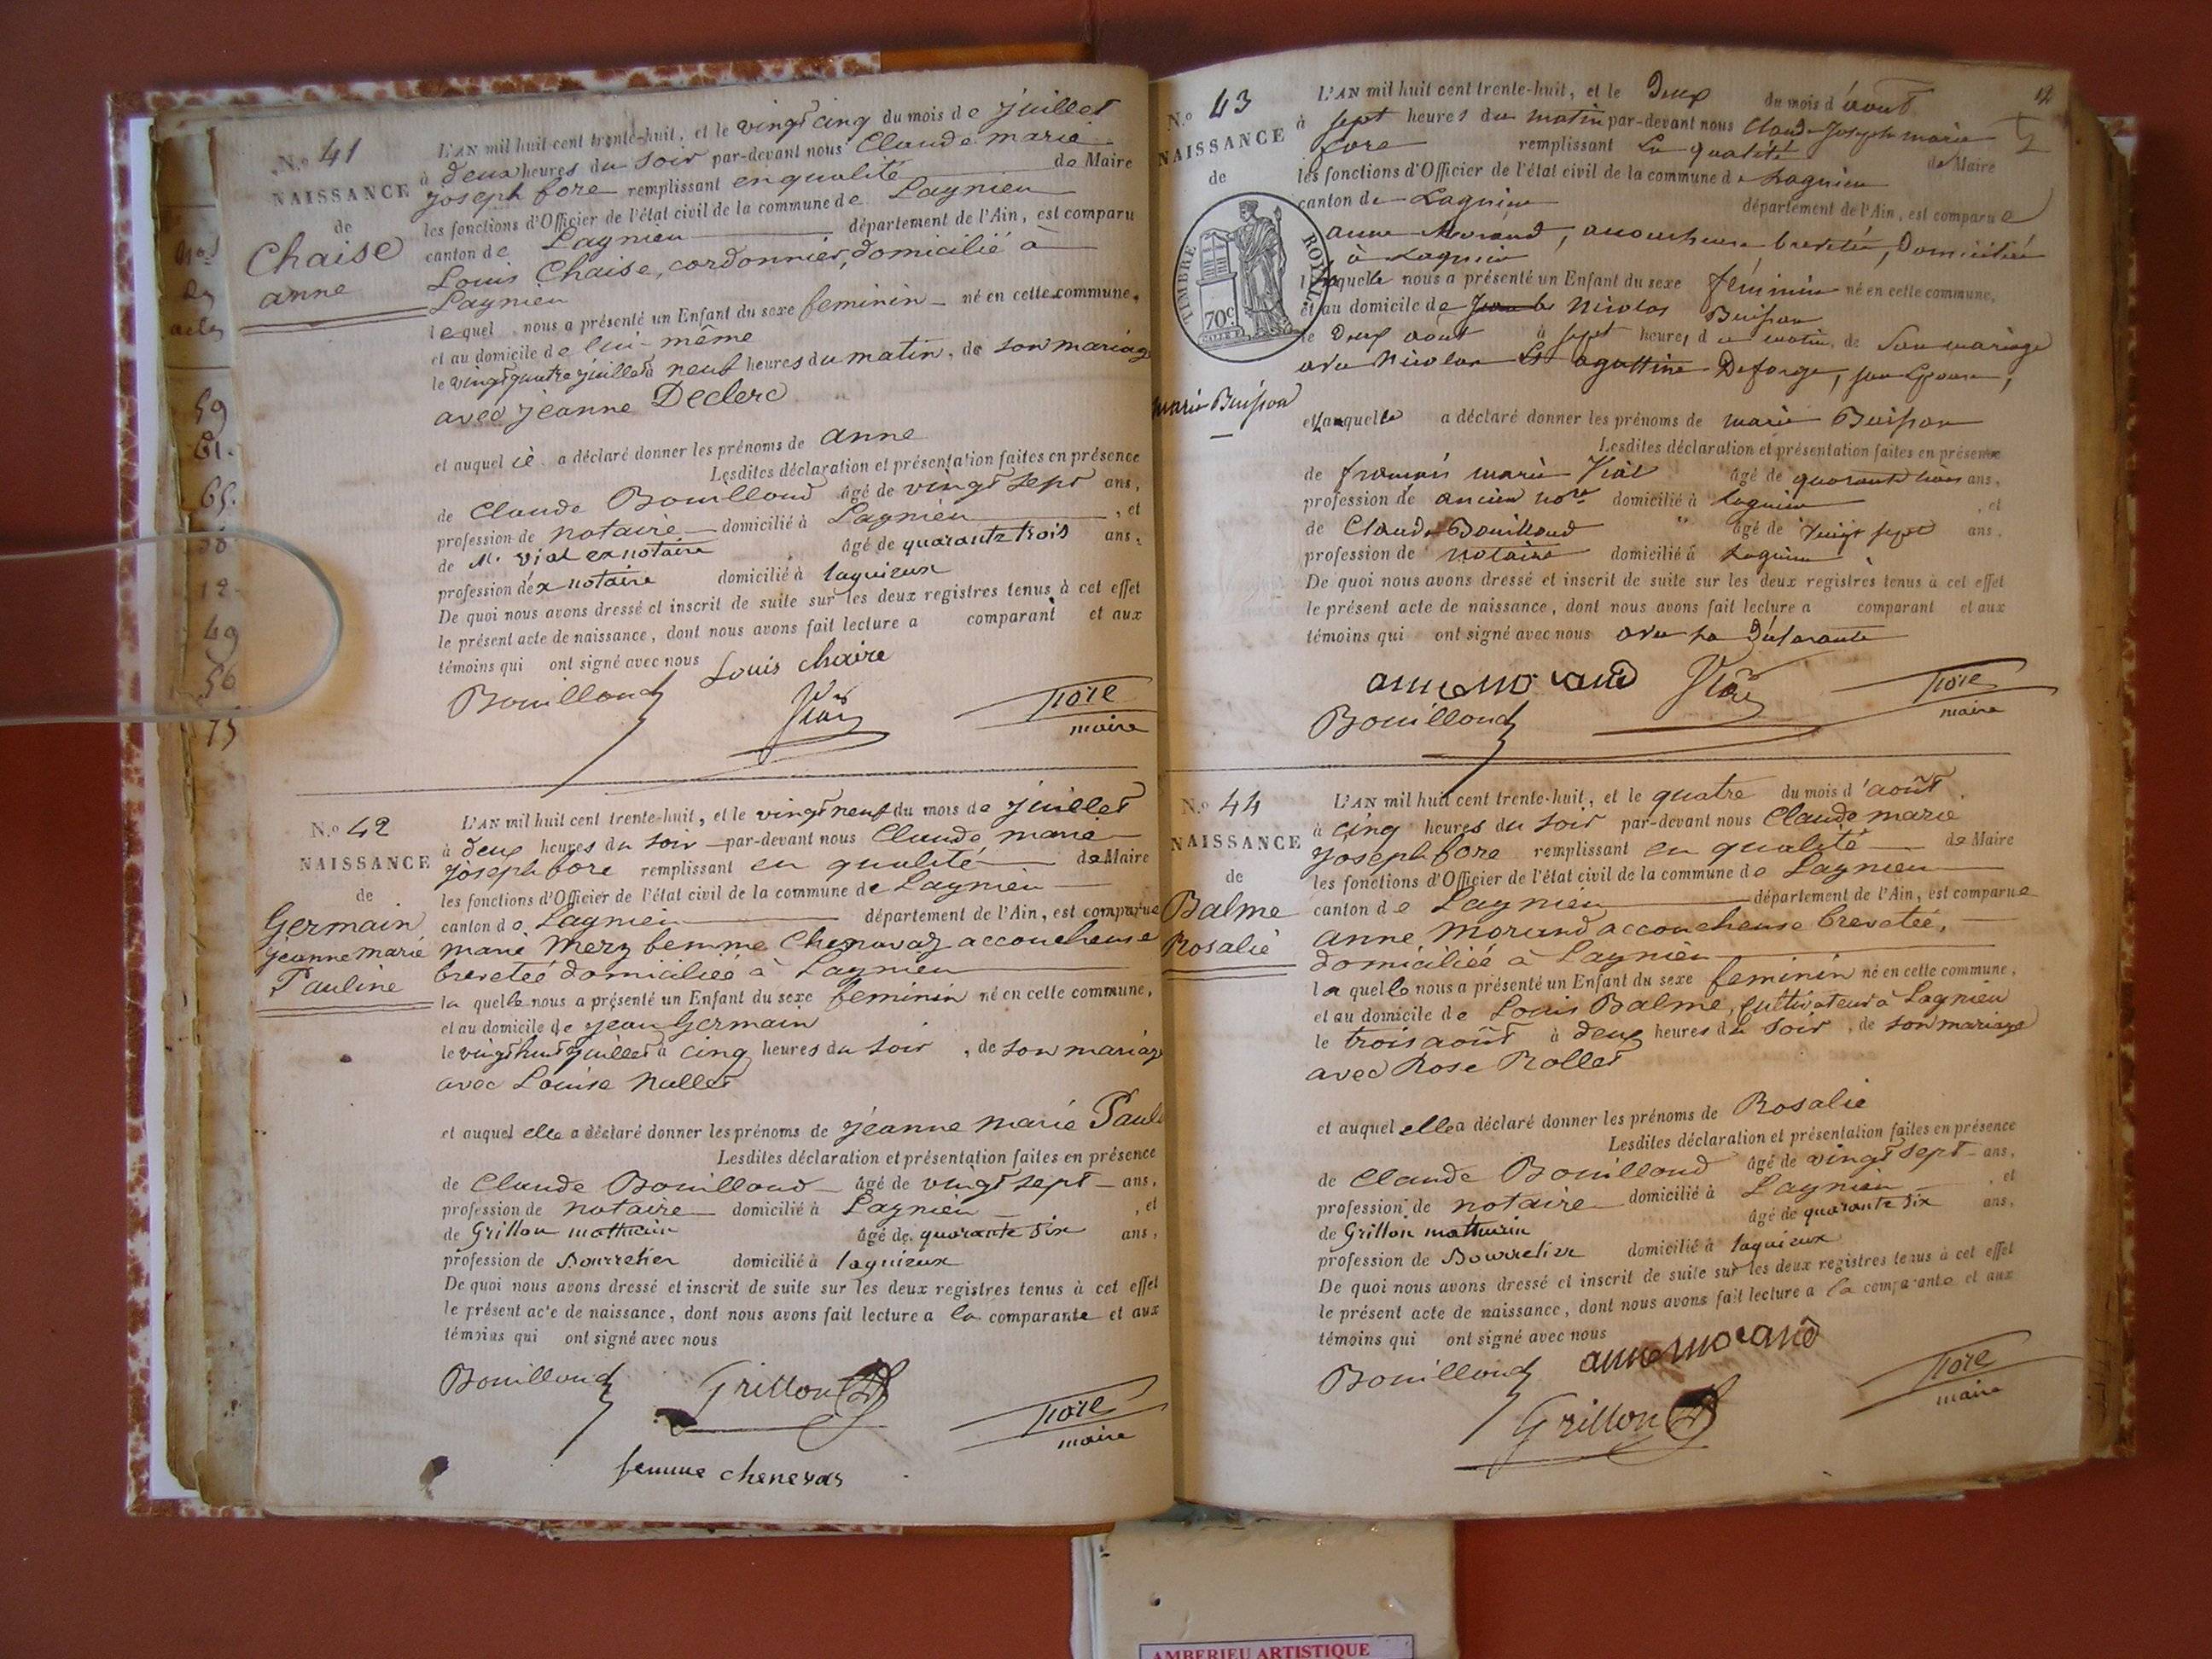 N.º 41
NAISSANCE
de
Chaise
anne
L'AN mil huit cent trente-huit, et le vingt cinq du mois de juillet
à deux heures du soir par-devant nous Claude marie
joseph fore remplissant en qualité de Maire
les fonctions d'Officier de l'état civil de la commune de Lagnieu
canton de Lagnieu département de l'Ain, est comparu
Louis Chaise, cordonnier, domicilié à
Lagnieu
lequel nous a présenté un Enfant du sexe feminin né en cette commune,
et au domicile de lui-même
le vingt quatre juillet à neuf heures du matin, de son mariage
avec jeanne Declerc
et auquel il a déclaré donner les prénoms de anne
Lesdites déclaration et présentation faites en présence
de Claude Bouilloud âgé de vingt sept ans,
profession de notaire domicilié à Lagnieu, et
de M. Vial ex notaire âgé de quarante trois ans,
profession d'ex notaire domicilié à lagnieux
De quoi nous avons dressé et inscrit de suite sur les deux registres tenus à cet effet
le présent acte de naissance, dont nous avons fait lecture a comparant et aux
témoins qui ont signé avec nous Louis chaise
Bouilloud Vial fore
maire
N.º 42
NAISSANCE
de
Germain
jeanne marie
Pauline
L'AN mil huit cent trente-huit, et le vingt neuf du mois de juillet
à deux heures du soir par-devant nous Claude marie
joseph fore remplissant en qualité de Maire
les fonctions d'Officier de l'état civil de la commune de Lagnieu
canton de Lagnieu département de l'Ain, est comparue
marie Merz femme Chenavaz accoucheuse
breveteé domiciliéé à Lagnieu
la quelle nous a présenté un Enfant du sexe feminin né en cette commune,
et au domicile de jean Germain
le vingt huit juillet à cinq heures du soir, de son mariage
avec Louise Nallet
et auquel elle a déclaré donner les prénoms de jeanne marie Paul
Lesdites déclaration et présentation faites en présence
de Claude Bouilloud âgé de vingt sept ans,
profession de notaire domicilié à Lagnieu, et
de Grillon mathurin âgé de quarante six ans,
profession de Bourrelier domicilié à lagnieux
De quoi nous avons dressé et inscrit de suite sur les deux registres tenus à cet effet
le présent acte de naissance, dont nous avons fait lecture a la comparante et aux
témoins qui ont signé avec nous
Bouilloud Grillon fore
maire
femme chenevas
N.º 43
NAISSANCE
de
TIMBRE ROYAL
70c
marie Buisson
L'AN mil huit cent trente-huit, et le Deux du mois d'août
à sept heures du matin par-devant nous Claude Joseph marie
fore remplissant La qualité de Maire
les fonctions d'Officier de l'état civil de la commune de Lagnieu
canton de Lagnieu département de l'Ain, est comparue
anne Morand, accoucheuse brevetée, Domiciliée
à Lagnieu
laquelle nous a présenté un Enfant du sexe féminin né en cette commune,
et au domicile de Nicolas Buisson
le Deux août à sept heures du matin, de Son mariage
avec agattine Deforge, son Epouse,
et Laquelle a déclaré donner les prénoms de marie Buisson
Lesdites déclaration et présentation faites en présence
de françois marie Vial âgé de quarante trois ans,
profession de ancien nore domicilié à Lagnieu, et
de Claude Bouilloud âgé de Vingt sept ans,
profession de notaire domicilié à Lagnieu
De quoi nous avons dressé et inscrit de suite sur les deux registres tenus à cet effet
le présent acte de naissance, dont nous avons fait lecture a comparant et aux
témoins qui ont signé avec nous avec La Déclarante
anne morand Vial fore
maire
Bouilloud
N.º 44
NAISSANCE
de
Balme
Rosalie
L'AN mil huit cent trente-huit, et le quatre du mois d'août
à cinq heures du soir par-devant nous Claude marie
joseph fore remplissant en qualité de Maire
les fonctions d'Officier de l'état civil de la commune de Lagnieu
canton de Lagnieu département de l'Ain, est comparue
anne Morand accoucheuse breveteé,
domiciliéé à Lagnieu
la quelle nous a présenté un Enfant du sexe feminin né en cette commune,
et au domicile de Louis Balme, Cultivateur à Lagnieu
le trois août à deux heures du soir, de son mariage
avec Rose Rollet
et auquel elle a déclaré donner les prénoms de Rosalie
Lesdites déclaration et présentation faites en présence
de Claude Bouilloud âgé de vingt sept ans,
profession de notaire domicilié à Lagnieu, et
de Grillon mathurin âgé de quarante six ans,
profession de Bourrelier domicilié à lagnieux
De quoi nous avons dressé et inscrit de suite sur les deux registres tenus à cet effet
le présent acte de naissance, dont nous avons fait lecture a la comparante et aux
témoins qui ont signé avec nous
Bouilloud anne morand fore
maire
Grillon
59
61.
65.
12
49
56
75
AMBERIEU ARTISTIQUE